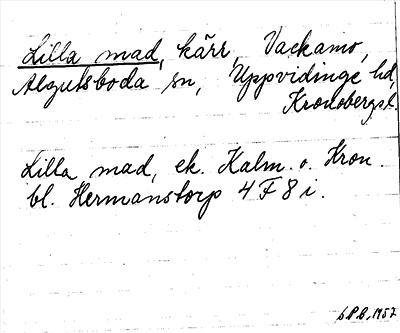 Lilla mad, kärr, Vackamo,
Algutsboda sn, Uppvidinge hd,
Kronobergsl.
Lilla mad, ek. Kalm. o. Kron.
bl. Hermanstorp 4 F 8 i.
1957